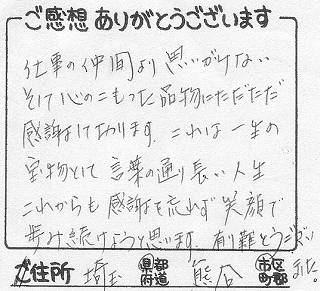 ご感想ありがとうございます
仕事の仲間より思いがけない
そして心のこもった品物にただただ
感謝して居ります。これは一生の
宝物として言葉の通り長い人生
これからも感謝を忘れず笑顔で
歩み続けようと思います。有難とうござい
ました。
ご住所 埼玉 都道府県 熊谷 市区町郡